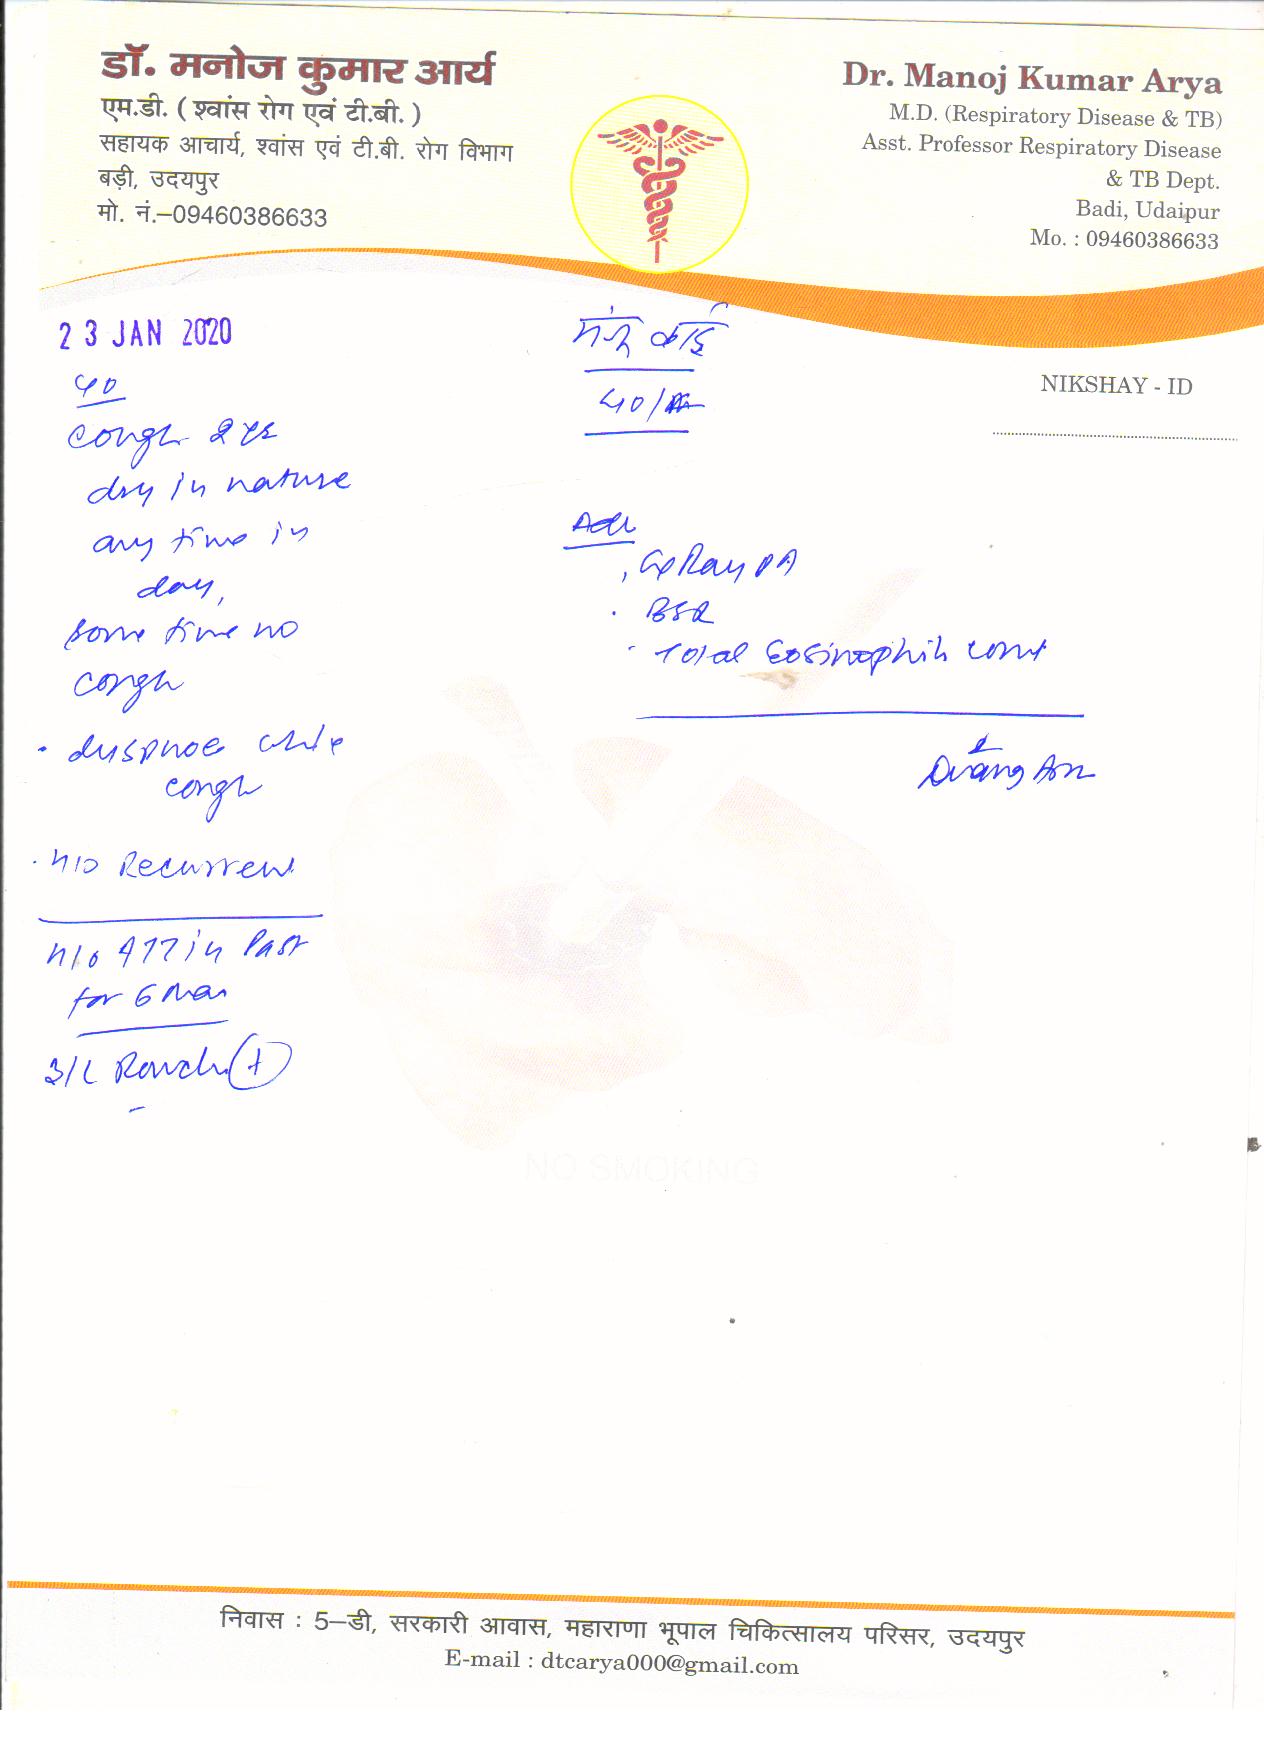 डॉ. मनोज कुमार आर्य
एम.डी. ( श्वांस रोग एवं टी.बी. )
सहायक आचार्य, श्वांस एवं टी.बी. रोग विभाग
बड़ी, उदयपुर
मो. नं.–09460386633
Dr. Manoj Kumar Arya
M.D. (Respiratory Disease & TB)
Asst. Professor Respiratory Disease
& TB Dept.
Badi, Udaipur
Mo. : 09460386633
23 JAN 2020
NIKSHAY - ID
40/
cough 2 yrs
dry in nature
any time in
day,
some time no
cough
• dyspnoe while
cough
• H/O Recurren
H/o ATT in Past
for 6 Mon
B/L Ronchi (+)
Adv
X Ray PA
• BSR
• Total Eosinophil count
NO SMOKING
निवास : 5–डी, सरकारी आवास, महाराणा भूपाल चिकित्सालय परिसर, उदयपुर
E-mail : dtcarya000@gmail.com